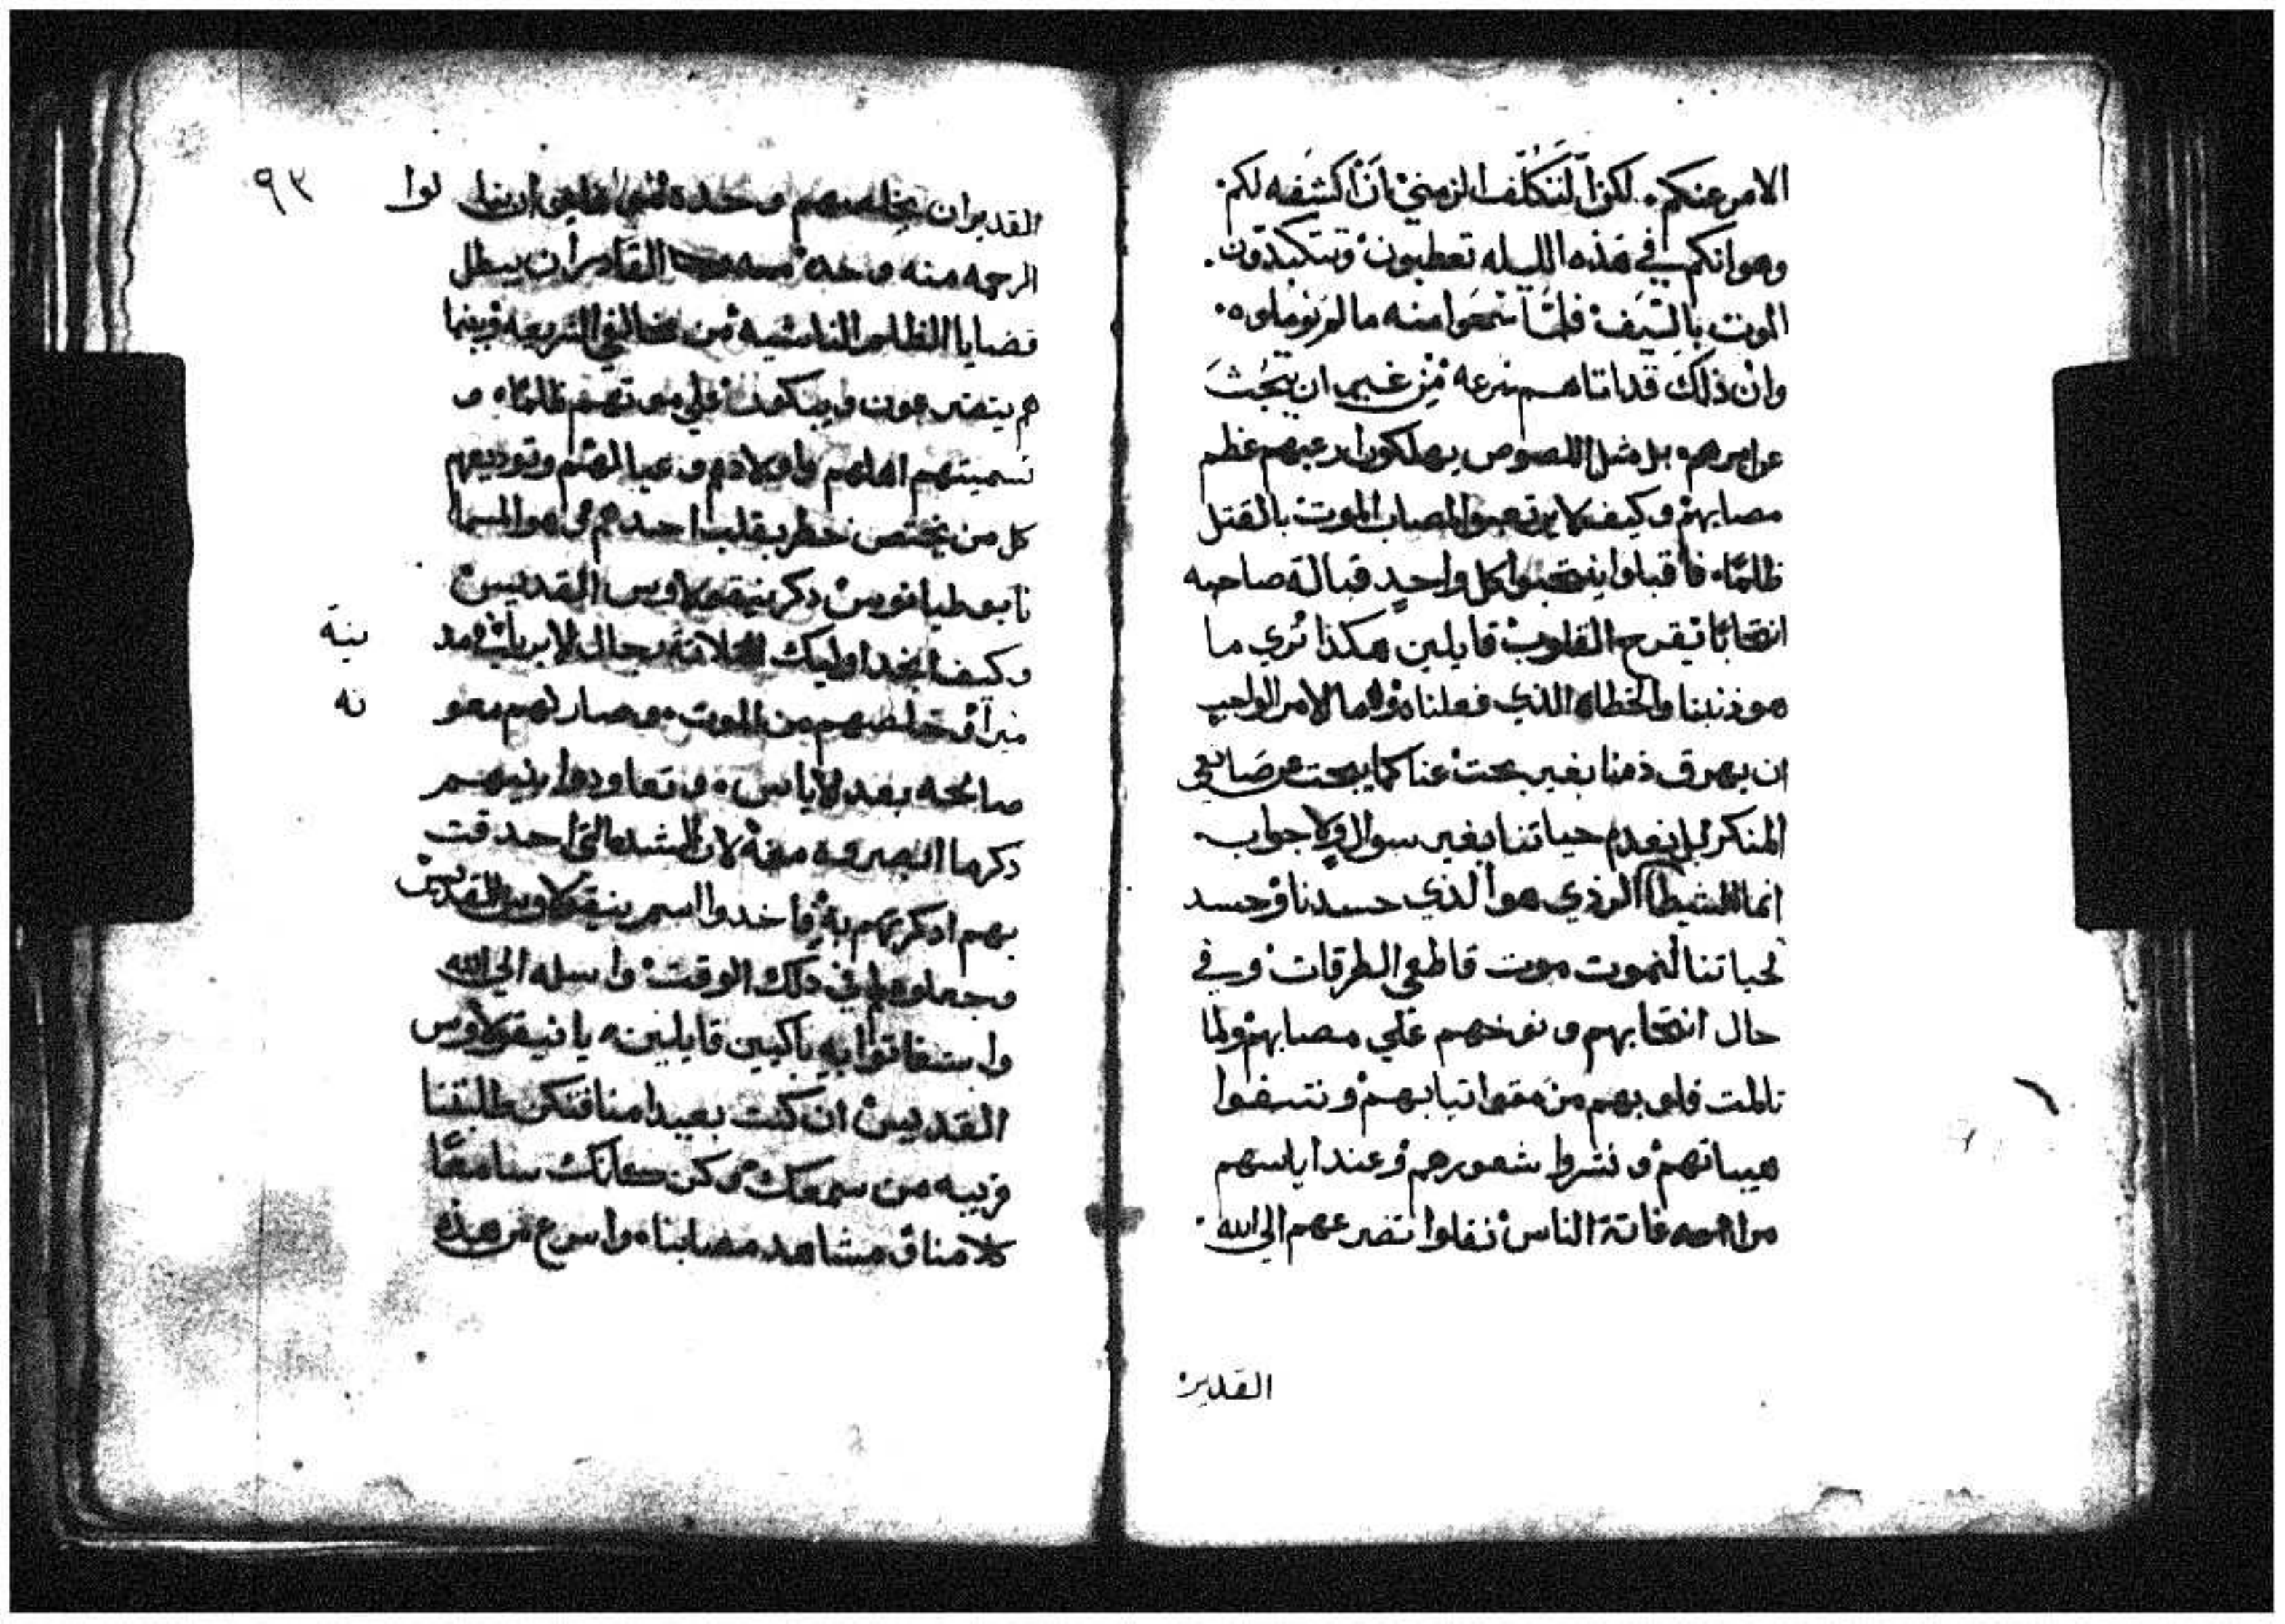 الامر عنكم. لكن التكلف الزمني بان اكشفه لكم.
وهو انكم في هذه الليله تعطبون وتتكبدون.
الموت بالسيف فلما سمعوا منه ما لم يوملوه.
وان ذلك قد اتاهم سرعه من غير ان يبحث
عن امرهم بل مثل اللصوص يهلكون ارعبهم عظم
مصابهم وكيف لا يرتعبوا لمصاب الموت بالقتل
ظلمًا. فاقبلوا ينتحبوا كل واحدٍ قبالة صاحبه
انتحابًا تقرح القلوب قايلين هكذا تري ما
هو ذنبنا والخطاه الذي فعلناه وما الامر الواجب
ان يهرق دمنا بغير بحث عنا كما يبحث عن صانعي
المنكر بل نعدم حياتنا بغير سوال ولا جواب.
انما الشيطان الردي هو الذي حسدنا وحسد
لحياتنا لنموت موت قاطعي الطرقات وفي
حال انتحابهم ونوحهم علي مصابهم ولما
تالمت قلوبهم مزقوا تيابهم ونتفوا
هيباتهم ونشروا شعورهم وعند اياسهم
من اغاتة الناس نقلوا تضرعهم الي الله.
القدير
٩٣
القدير ان يخلصهم وحده ان ينالوا
الرحمه منه وحده القادر ان يبطل
قضايا الظلم الناشيه من مخالفي الشريعه وبينما
هم يتضرعون ويبكون علي موتهم ظلمًا. و
تسميتهم اهلهم واولادهم وعيالهم وتوديعهم
كل من يختص خطر بقلب احدهم هو المسما
نابوطيانوس دكر نيقولاوس القديس
وكيف انجد اوليك الثلاتة رجال الابريا في مدينة
ميرا وخلصهم من الموت. وصار لهم معونه
صالحه بعد الاياس. وتعاودوا بينهم
دكر ما ابصروه منه لان الشده التي احدقت
بهم ادكرتهم به فاخدوا اسم نيقولاوس القديس
وجعلوه في دلك الوقت واسطه الي الله
واستغاتوا به باكيين قايلين. يا نيقولاوس
القديس ان كنت بعيدا منا فتكن طلبتنا
قريبه من سمعك وكن كانك سامعًا
كلامنا ومشاهد مصابنا. واسرع من هذه